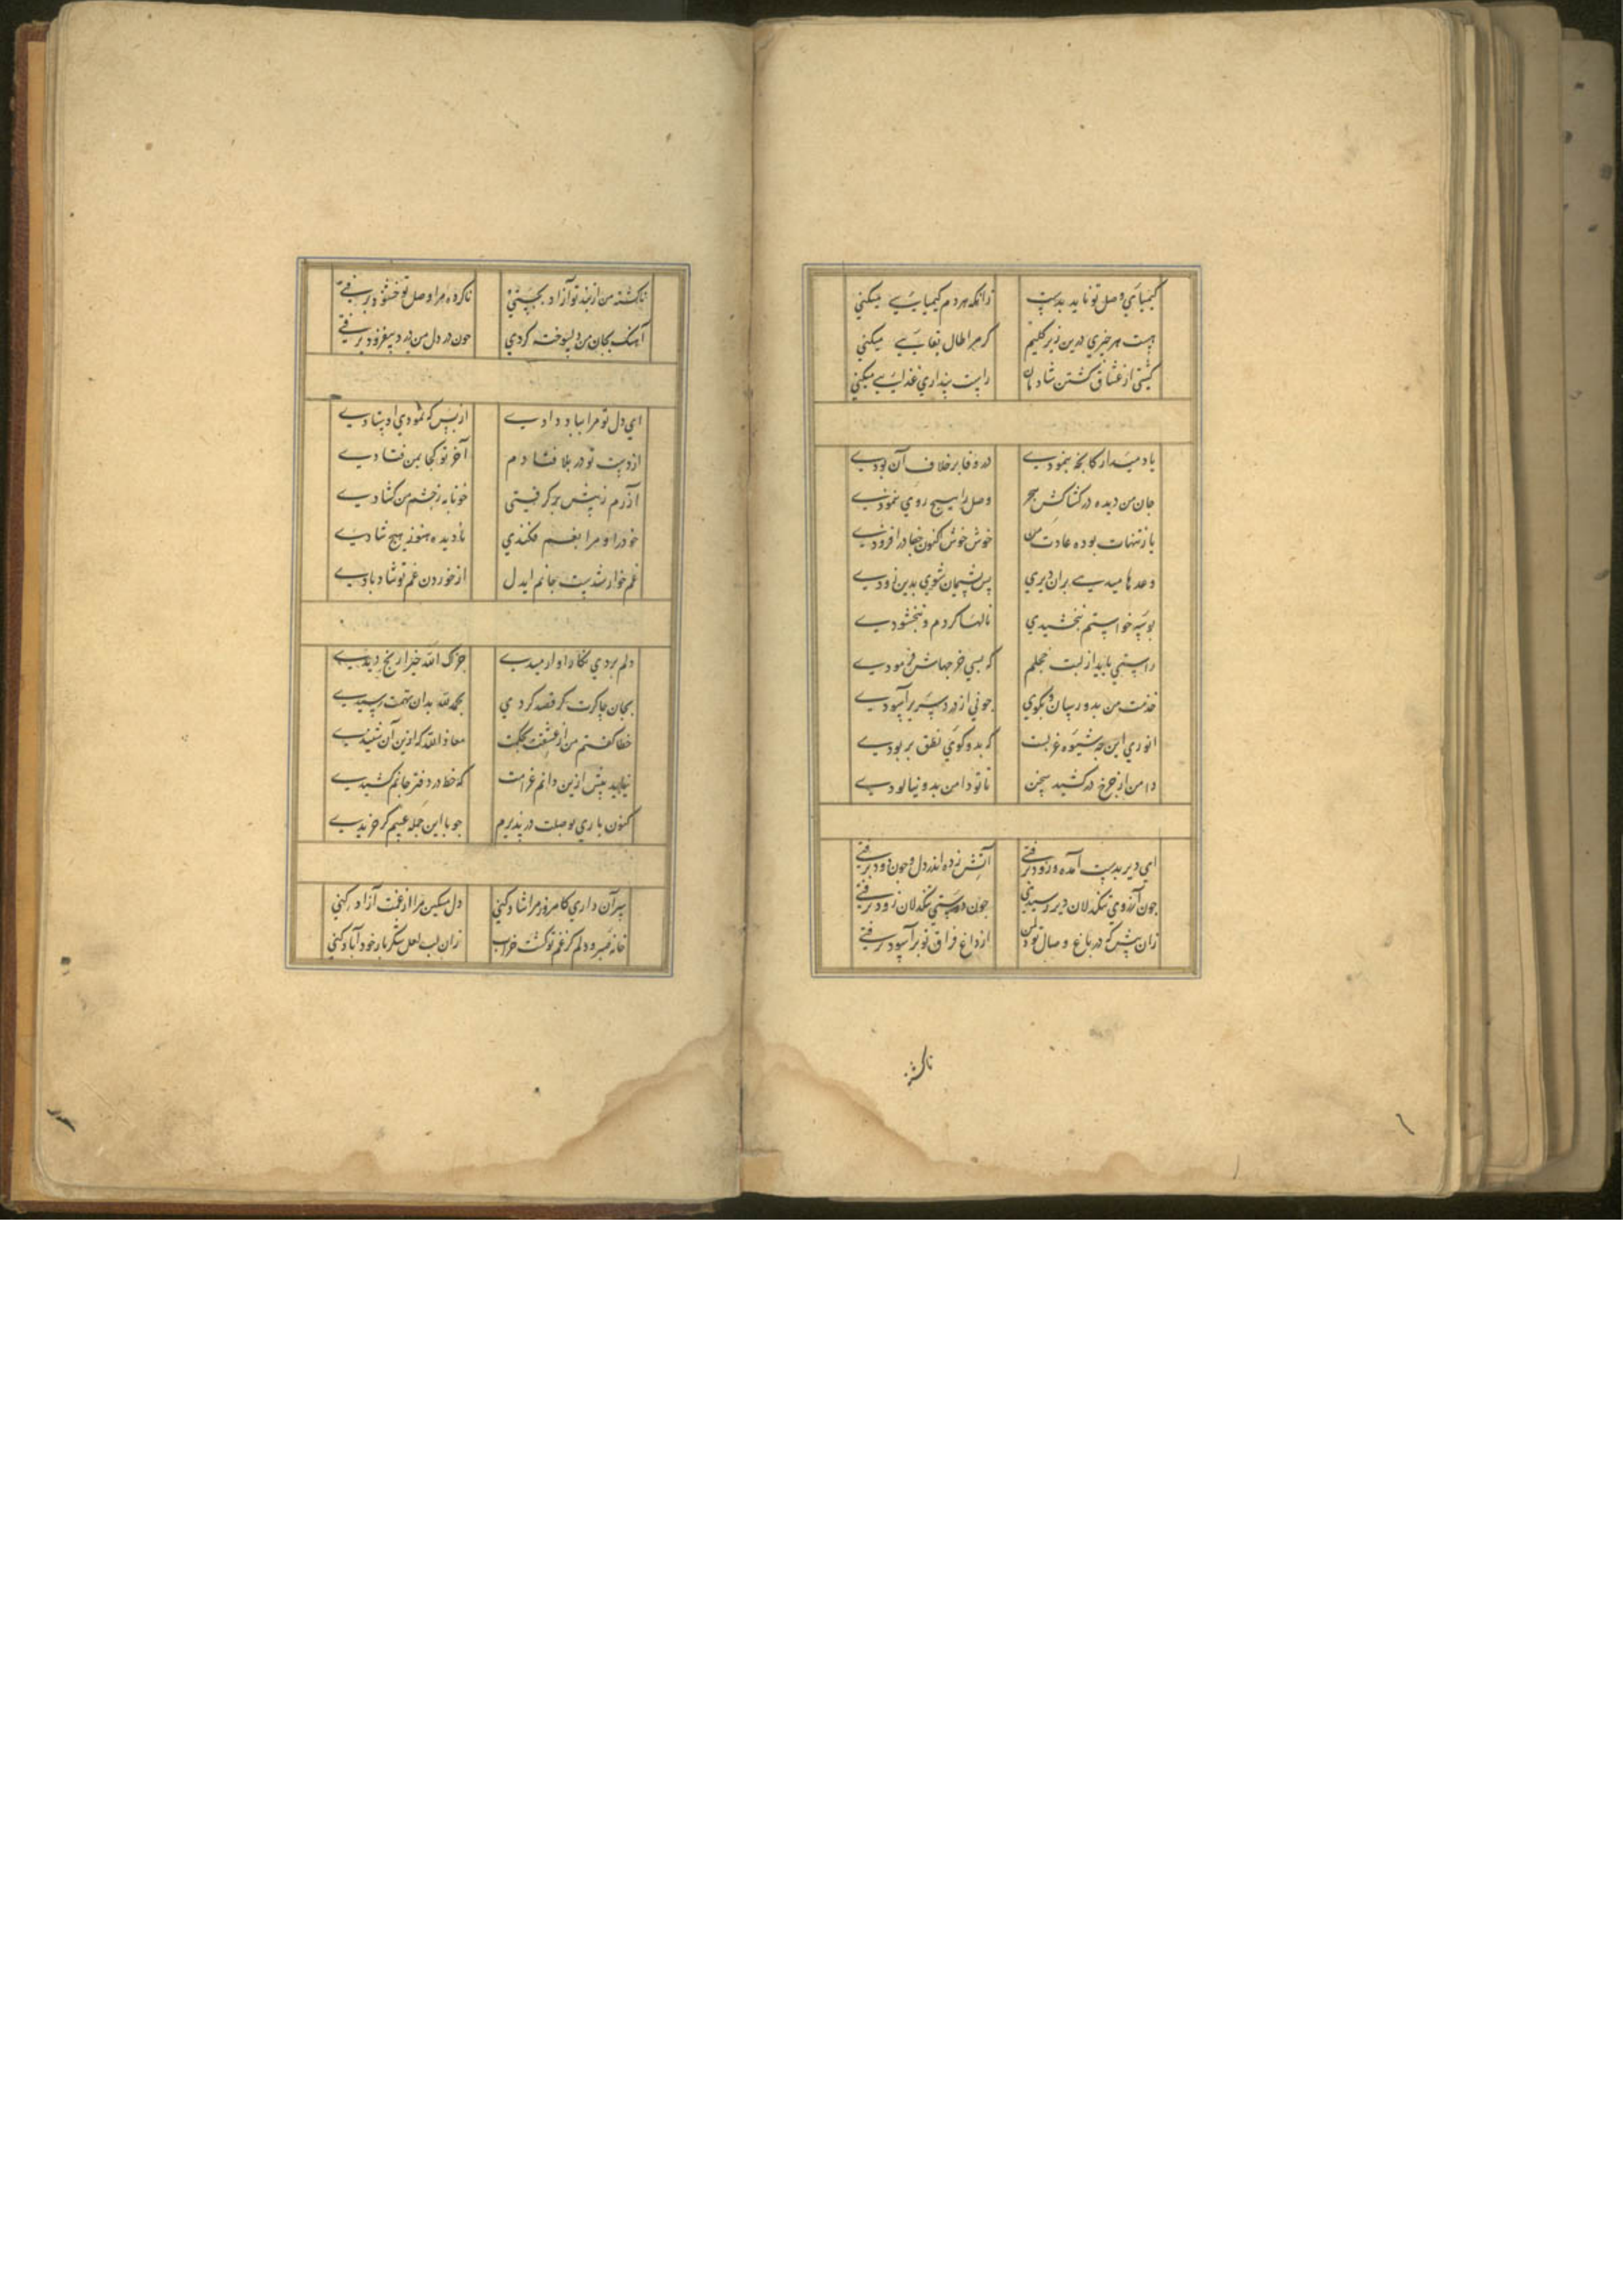 کیمیای وصل تو ناید بدست زانکه هر دم کیمیایی میکنی
هست هر چیزی درین زیر کلیم کر مرا طال بقایی میکنی
کشتی از عشاق کشتن شادمان راست پنداری غذایی میکنی
یاد میدار کانچه بنمودی در وفا بر خلاف آن بودی
جان من دیده در کشاکش هجر وصل را هیچ روی ننمودی
باز تنهات بوده عادت من خوش خوش اکنون جفا در افزودی
وعدها میدهی بران دیری پس پشیمان شوی بدین زودی
بوسه خواستم نبخشیدی نالها کردم و نبخشودی
راستی باید از لبت خجلم که بسی خرجهاش فرمودی
خدمت من بدو رسان و بکوی جونی از درد سر بر آسودی
انوری این جه شیوه غزلست که بدو کوی نطق بربودی
دامن از جرخ در کشید سخن تا تو دامن بدو نیالودی
ای دیر بدست آمده و زود برفتی آتش زده اندر دل و جون دود برفتی
جون آرزوی تنکدلان دیر رسیدی جون دوستی سنکدلان زود برفتی
زان پیش که در باغ وصال تو دل من از داغ فراق تو بر آسود برفتی
ناکشته
ناکشته من از بند تو آزاد بجستی ناکرده مرا وصل تو خشنود برفتی
آهنک بجان من دلسوخته کردی جون در دل من درد بیفزود برفتی
ای دل تو مرا بباد دادی از بس که نمودی اوستادی
از دست تو در بلا فتادم آخر تو کجا بمن فتادی
آزرم ز پیش بر کرفتی خونابه ز چشم من کشادی
خود را و مرا بغم فکندی نادیده هنوز هیچ شادی
غم خوار شدست جانم ای دل از خوردن غم تو شاد بادی
دلم بردی نکارا وارمیدی جزاک الله خیرا رنج دیدی
بجان چاکرت کر قصد کردی بحمد الله بدان نهمت رسیدی
خطا کفتم من از عشقت بحکمت معاذ الله که ازین آن شنیدی
نیاید بیش ازین دانم غرامت که خط در دفتر جانم کشیدی
کنون باری بوصلت در پذیرم جو با این جمله عیبم کر خریدی
سر آن داری کامروز مرا شاد کنی دل مسکین مرا از غمت آزاد کنی
خانه صبر و دلم کز غم تو کشت خراب زان لب لعل شکربار خود آباد کنی